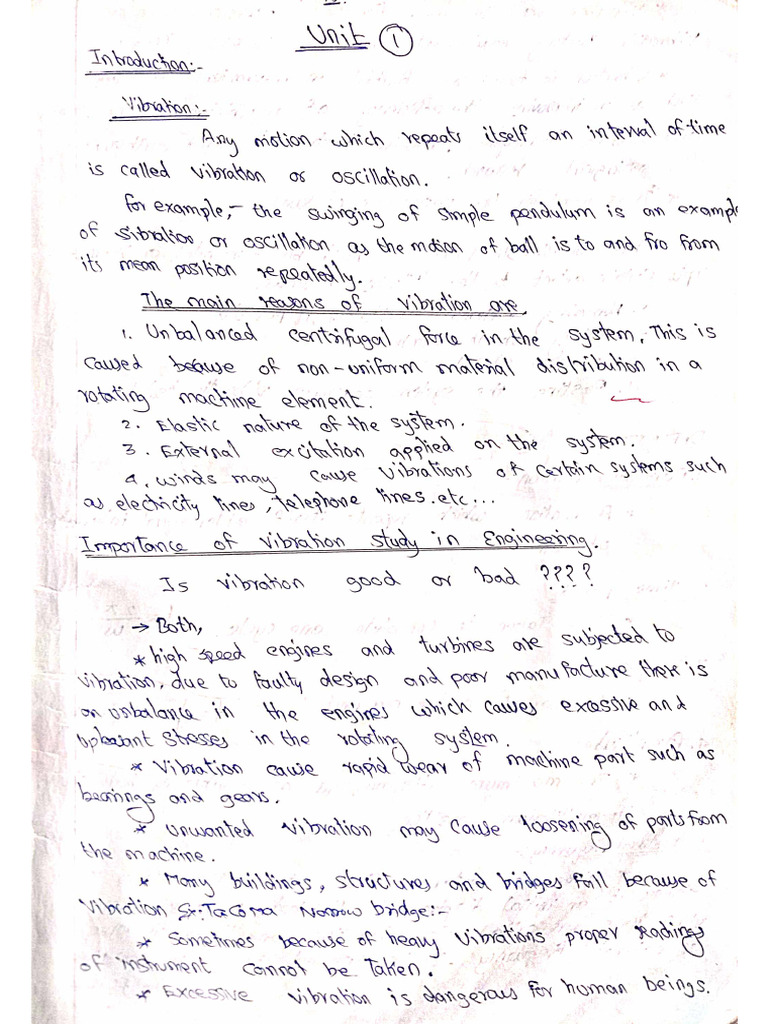 Unit 1
Introduction:-
Vibration:-
Any motion which repeats itself an interval of time
is called vibration or oscillation.
for example,- the swinging of simple pendulum is an example
of vibration or oscillation as the motion of ball is to and fro from
its mean position repeatedly.
The main reasons of vibration are
1. Unbalanced centrifugal force in the system, This is
caused because of non-uniform material distribution in a
rotating machine element.
2. Elastic nature of the system.
3. External excitation applied on the system.
4. winds may cause vibrations of certain systems such
as electricity lines, telephone lines. etc...
Importance of vibration study in Engineering.
Is vibration good or bad ????
→ Both,
* high speed engines and turbines are subjected to
vibration, due to faulty design and poor manufacture there is
an unbalance in the engines which causes excessive and
upleasant stresses in the rotating system.
* Vibration cause rapid wear of machine part such as
bearings and gears.
* unwanted vibration may cause loosening of parts from
the machine.
* Many buildings, structures and bridges fall because of
vibration Ex:- Tacoma Narrow bridge:-
* Sometimes because of heavy vibrations proper readings
of instrument cannot be Taken.
* Excessive vibration is dangerous for human beings.